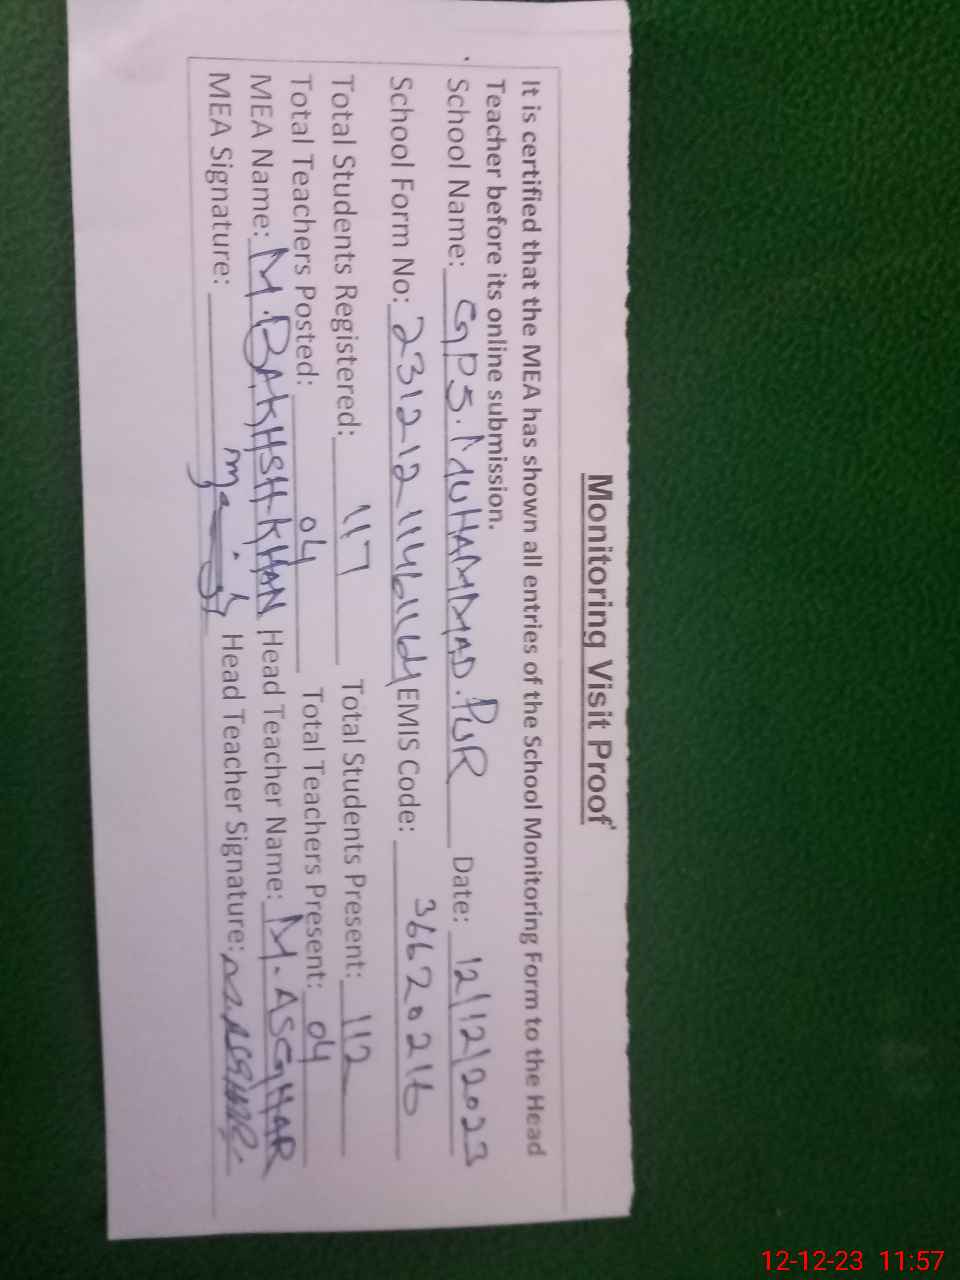 Monitoring Visit Proof
It is certified that the MEA has shown all entries of the School Monitoring Form to the Head
Teacher before its online submission.
School Name: GPS. MUHAMMAD. PUR Date: 12/12/2023
School Form No: EMIS Code: 36620216
Total Students Registered: 117 Total Students Present: 112
Total Teachers Posted: 04 Total Teachers Present: 04
MEA Name: M. BAKHSH KHAN Head Teacher Name: M. ASGHAR
MEA Signature: Head Teacher Signature:
12-12-23 11:57